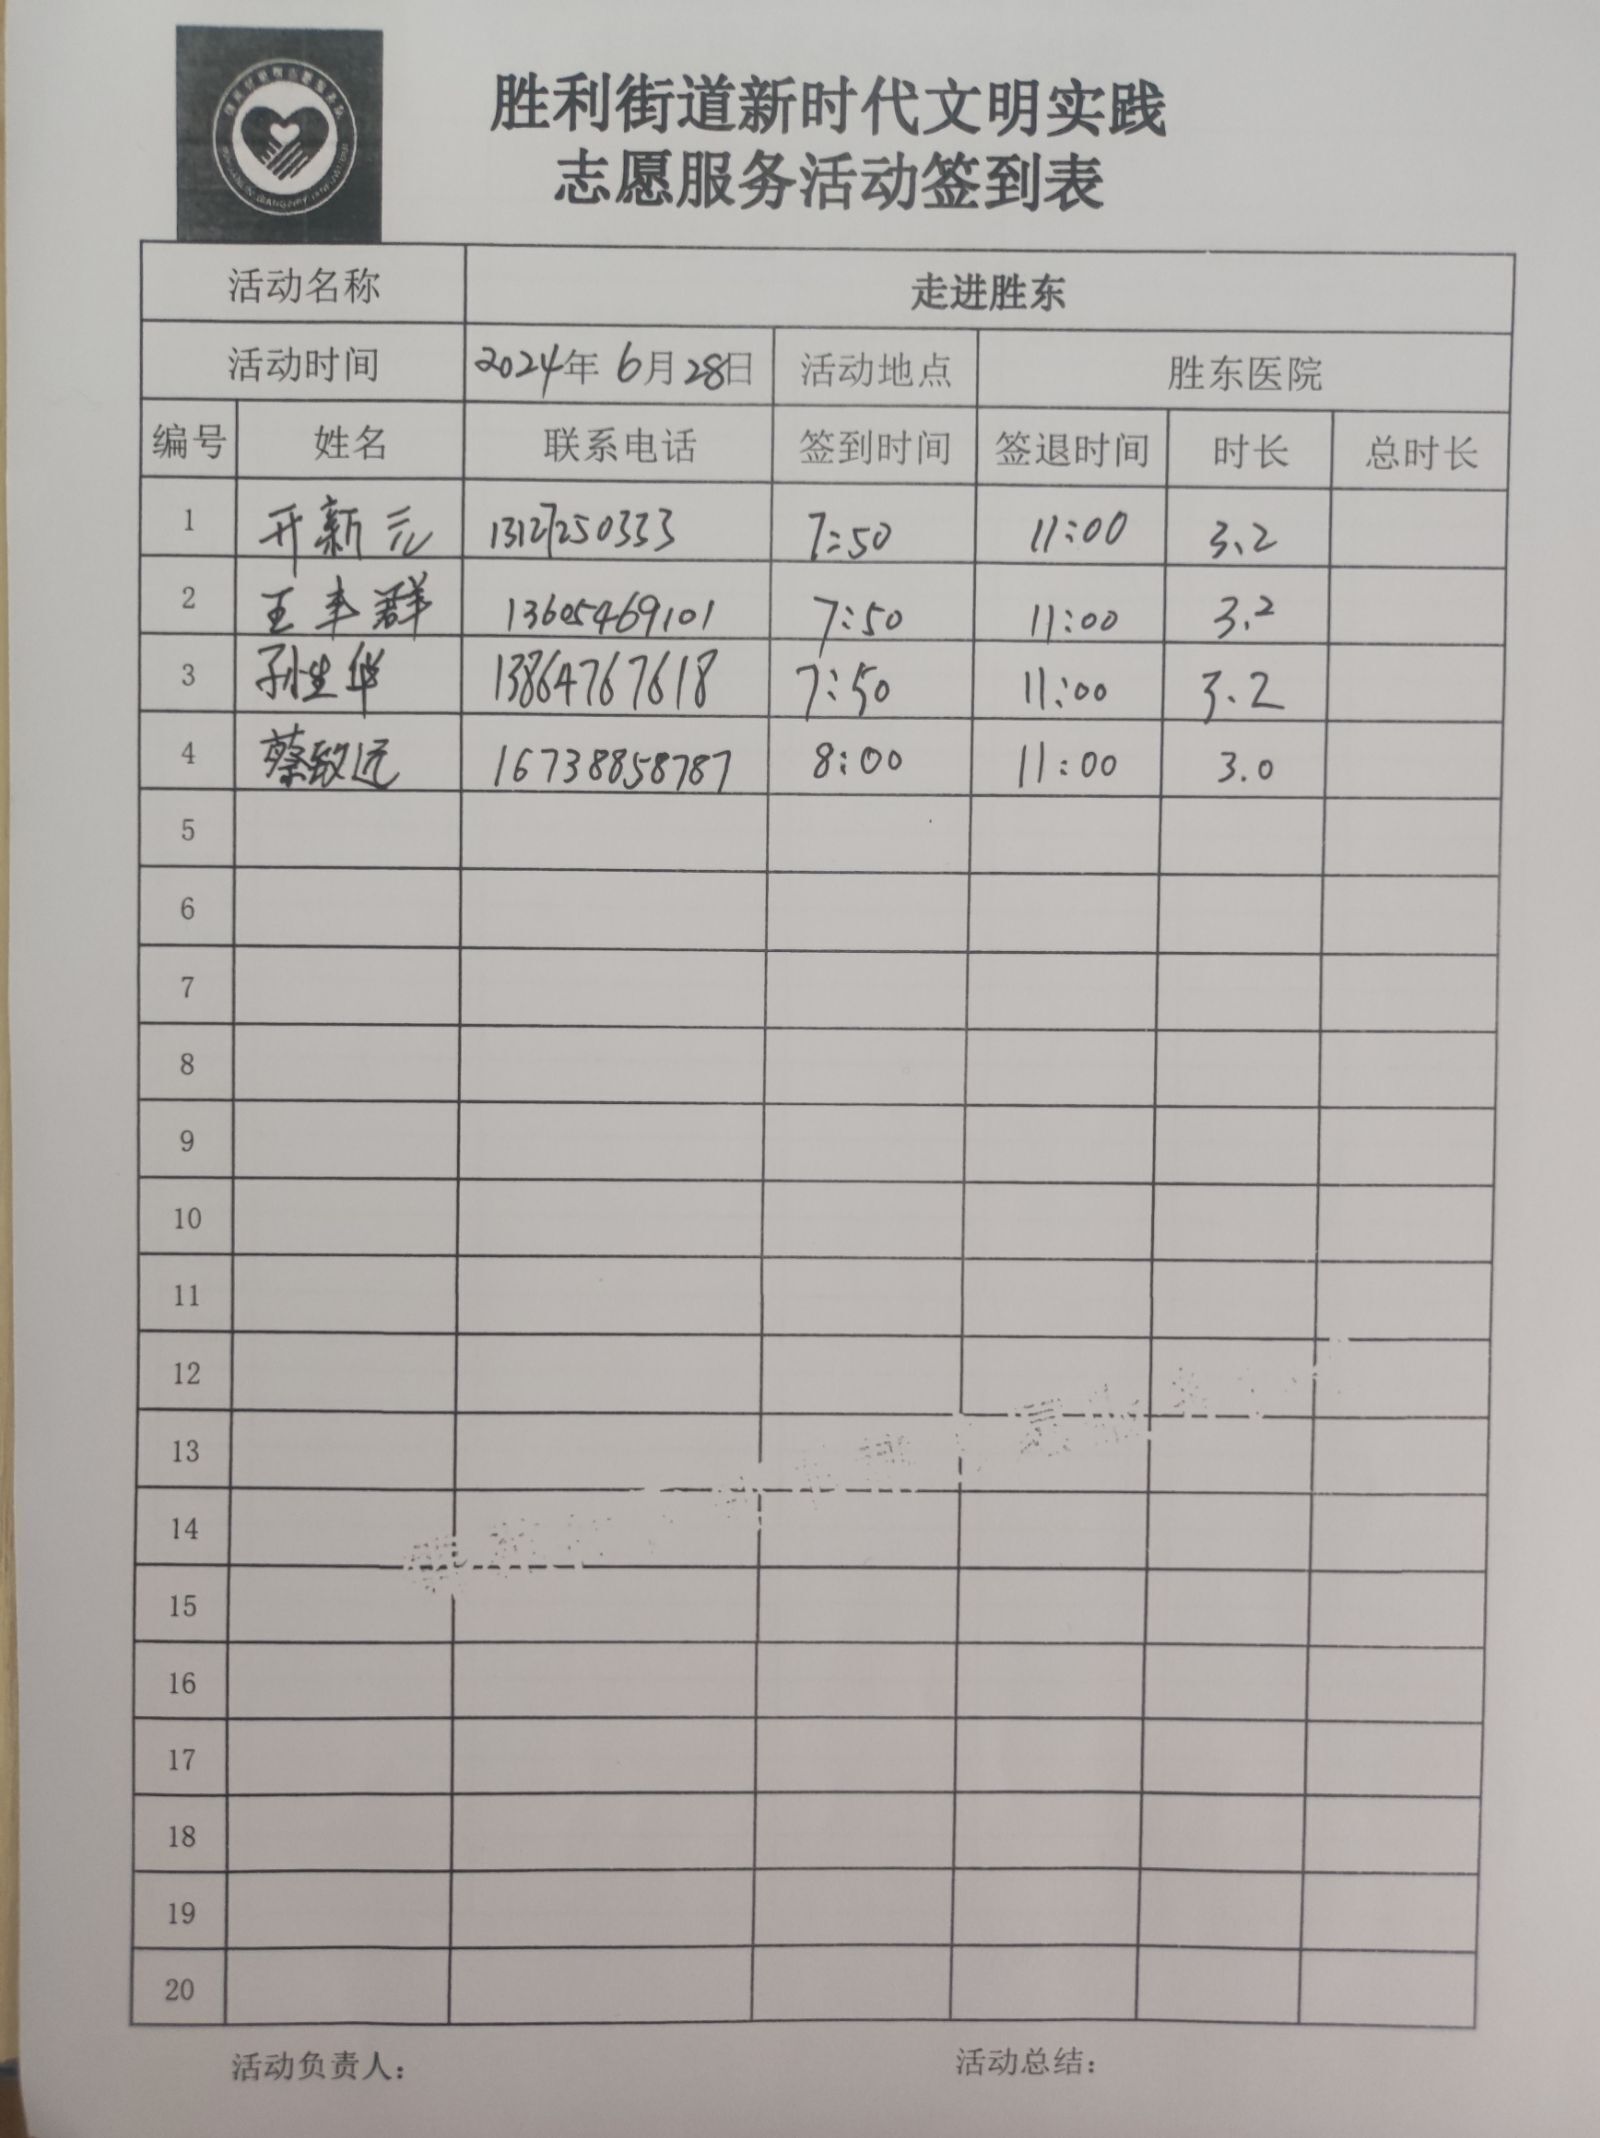 胜利街道新时代文明实践
志愿服务活动签到表
活动名称 走进胜东
活动时间 2024年 6月28日 活动地点 胜东医院
编号 姓名 联系电话 签到时间 签退时间 时长 总时长
1 开新元 13127250333 7:50 11:00 3.2
2 王丰群 13605469101 7:50 11:00 3.2
3 孙生华 13864767618 7:50 11:00 3.2
4 蔡致远 16738858787 8:00 11:00 3.0
5
6
7
8
9
10
11
12
13
14
15
16
17
18
19
20
活动负责人： 活动总结：